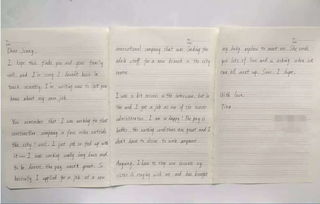 Dear Jenny,
I hope this finds you and your family
well, and I'm sorry I haven't been in
touch recently. I'm writing now to let you
know about my new job.
You remember that I was working for that
construction company a few miles outside
the city? Well, I just got so fed up with
it — I was working really long hours and
to be honest, the pay wasn't great. So
basically I applied for a job at a new
international company that was looking for
admin staff for a new branch in the city
centre.
I was a bit nervous in the interview, but in
the end I got a job as one of the senior
administrators. I am so happy! The pay is
better, the working conditions are great and I
don't have to drive to work anymore!
Anyway, I have to stop now because my
sister is staying with me and has brought
my baby nephew to meet me. She sends
you lots of love and is asking when we
can all meet up. Soon, I hope.
With love
Tina